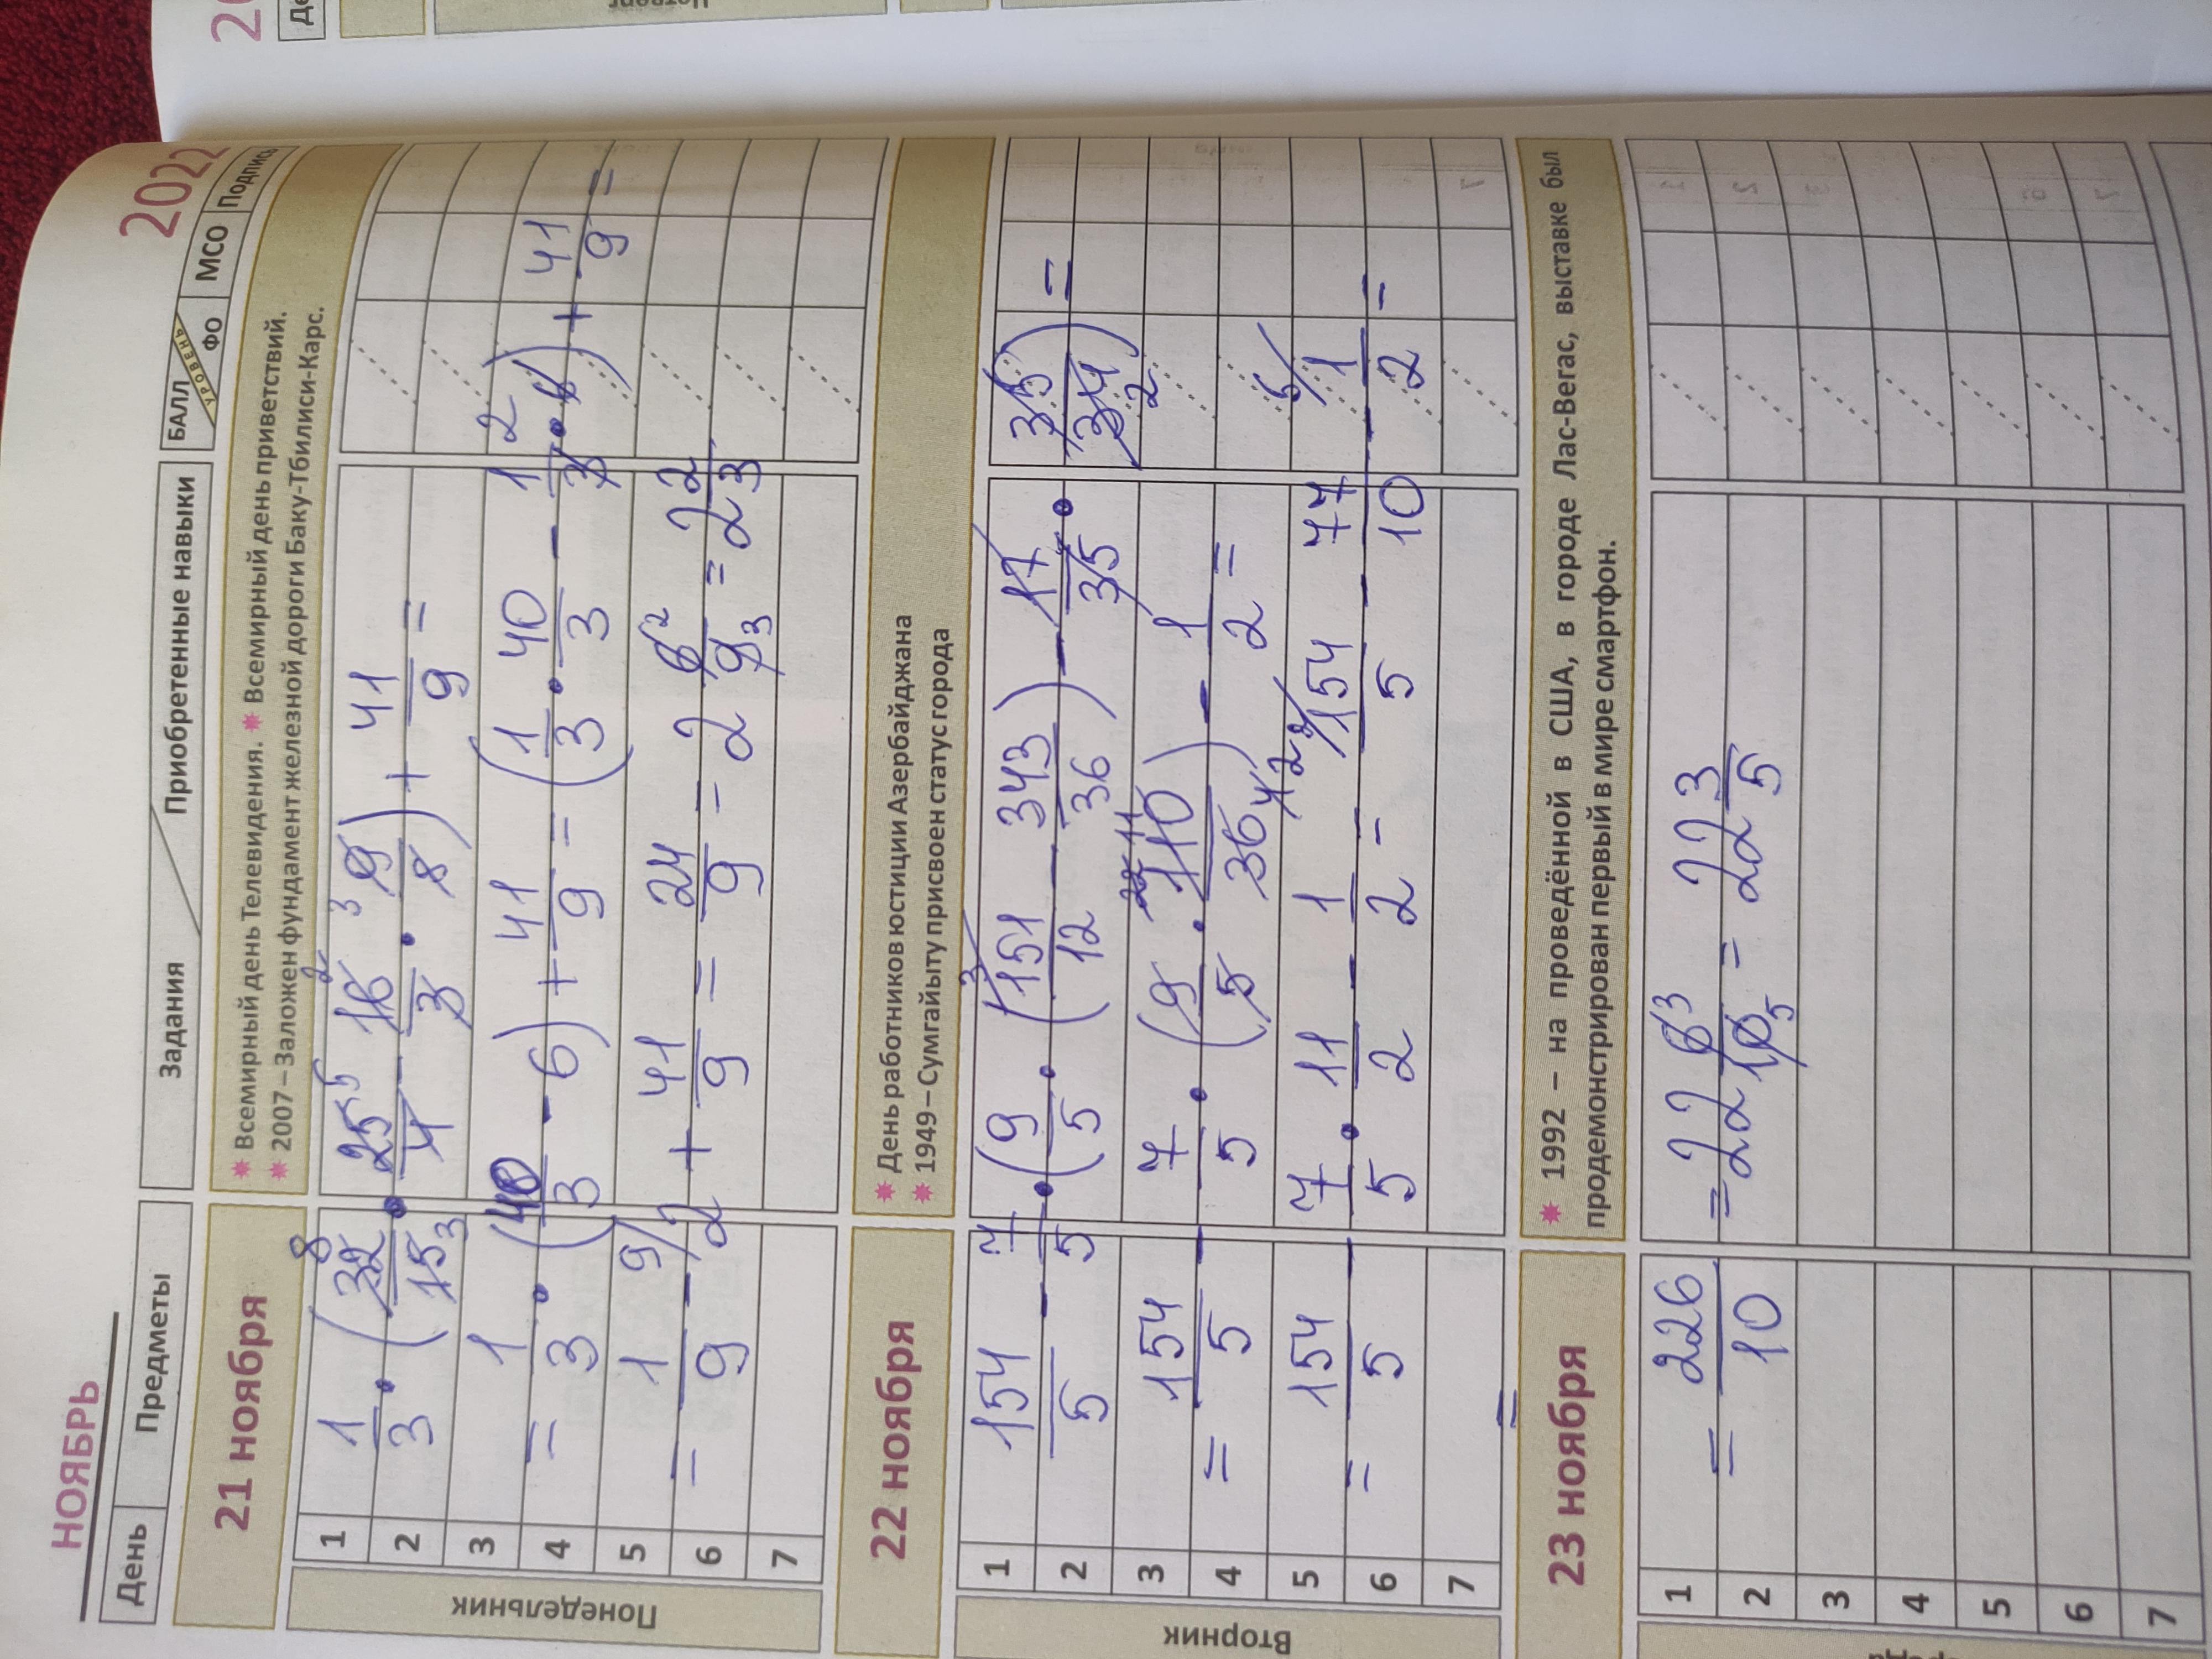 НОЯБРЬ 2022
День Предметы Задания Приобретенные навыки БАЛЛ УРОВЕНЬ ФО МСО Подпись
21 ноября
✷ Всемирный день Телевидения. ✷ Всемирный день приветствий.
✷ 2007 – Заложен фундамент железной дороги Баку-Тбилиси-Карс.
Понедельник
1
2
3
4
5
6
7
1/3 · (32/15 · 25/4 - 16/3 · 9/8) + 41/9 =
= 1/3 · (40/3 - 6) + 41/9 = (1/3 · 40/3 - 1/3 · 6) + 41/9 =
= 1/9 - 2 + 41/9 = 24/9 = 2 6/9 = 2 2/3
22 ноября
✷ День работников юстиции Азербайджана
✷ 1949 – Сумгайыту присвоен статус города
Вторник
1
2
3
4
5
6
7
154/5 - 7/5 · (9/5 · (151/12 - 343/36) - 17/35 · 35/34) =
= 154/5 - 7/5 · (9/5 · 110/36) - 1/2 =
= 154/5 - 7/5 · 11/2 - 1/2 = 154/5 - 77/10 - 1/2 =
23 ноября
✷ 1992 – на проведённой в США, в городе Лас-Вегас, выставке был
продемонстрирован первый в мире смартфон.
1
2
3
4
5
6
7
= 226/10 = 22 6/10 = 22 3/5